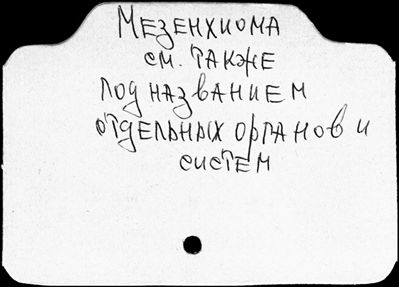 Мезенхиома
см. также
под названием
отдельных органов и
систем